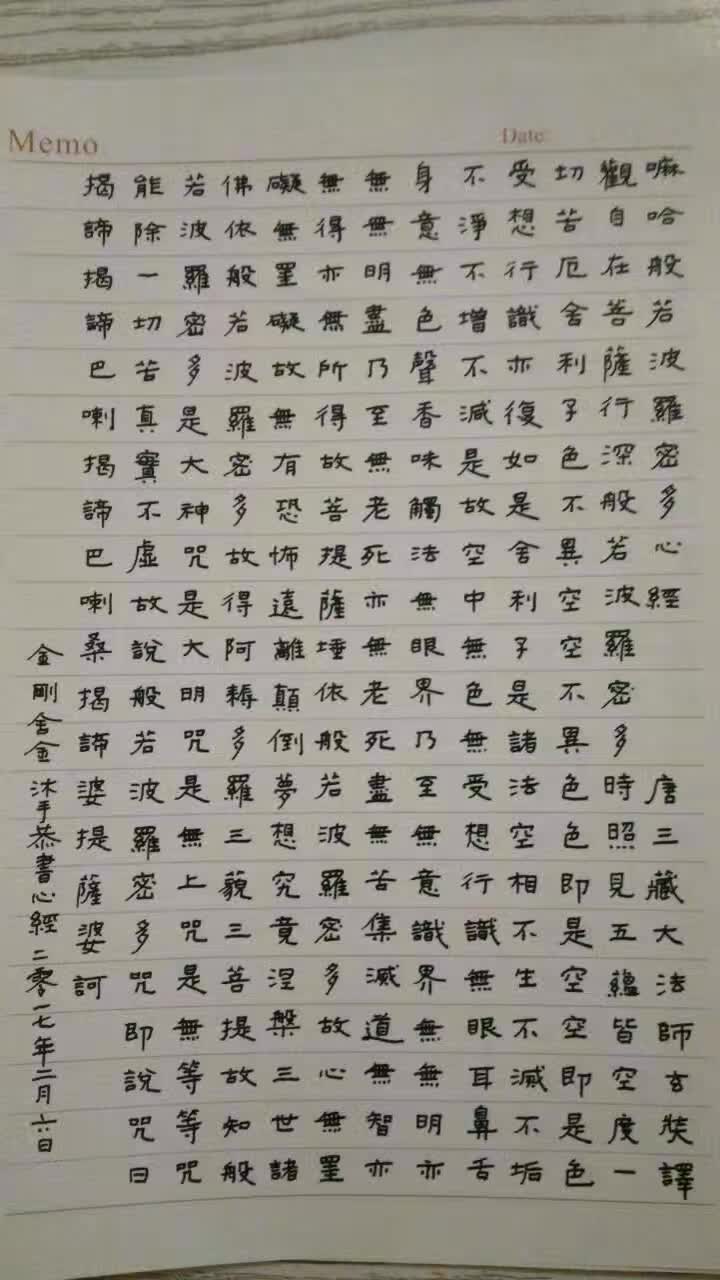 Memo
Date
嘛哈般若波羅密多心經 唐三藏大法師玄奘譯
觀自在菩薩行深般若波羅密多時照見五蘊皆空度一
切苦厄舍利子色不異空空不異色色即是空空即是色
受想行識亦復如是舍利子是諸法空相不生不滅不垢
不淨不增不減是故空中無色無受想行識無眼耳鼻舌
身意無色聲香味觸法無眼界乃至無意識界無無明亦
無無明盡乃至無老死亦無老死盡無苦集滅道無智亦
無得亦無所得故菩提薩埵依般若波羅密多故心無罣
礙無罣礙故無有恐怖遠離顛倒夢想究竟涅槃三世諸
佛依般若波羅密多故得阿耨多羅三藐三菩提故知般
若波羅密多是大神咒是大明咒是無上咒是無等等咒
能除一切苦真實不虛故說般若波羅密多咒即說咒曰
揭諦揭諦巴喇揭諦巴喇桑揭諦婆提薩婆訶
金剛舍金 沐手恭書心經二零一七年二月六日